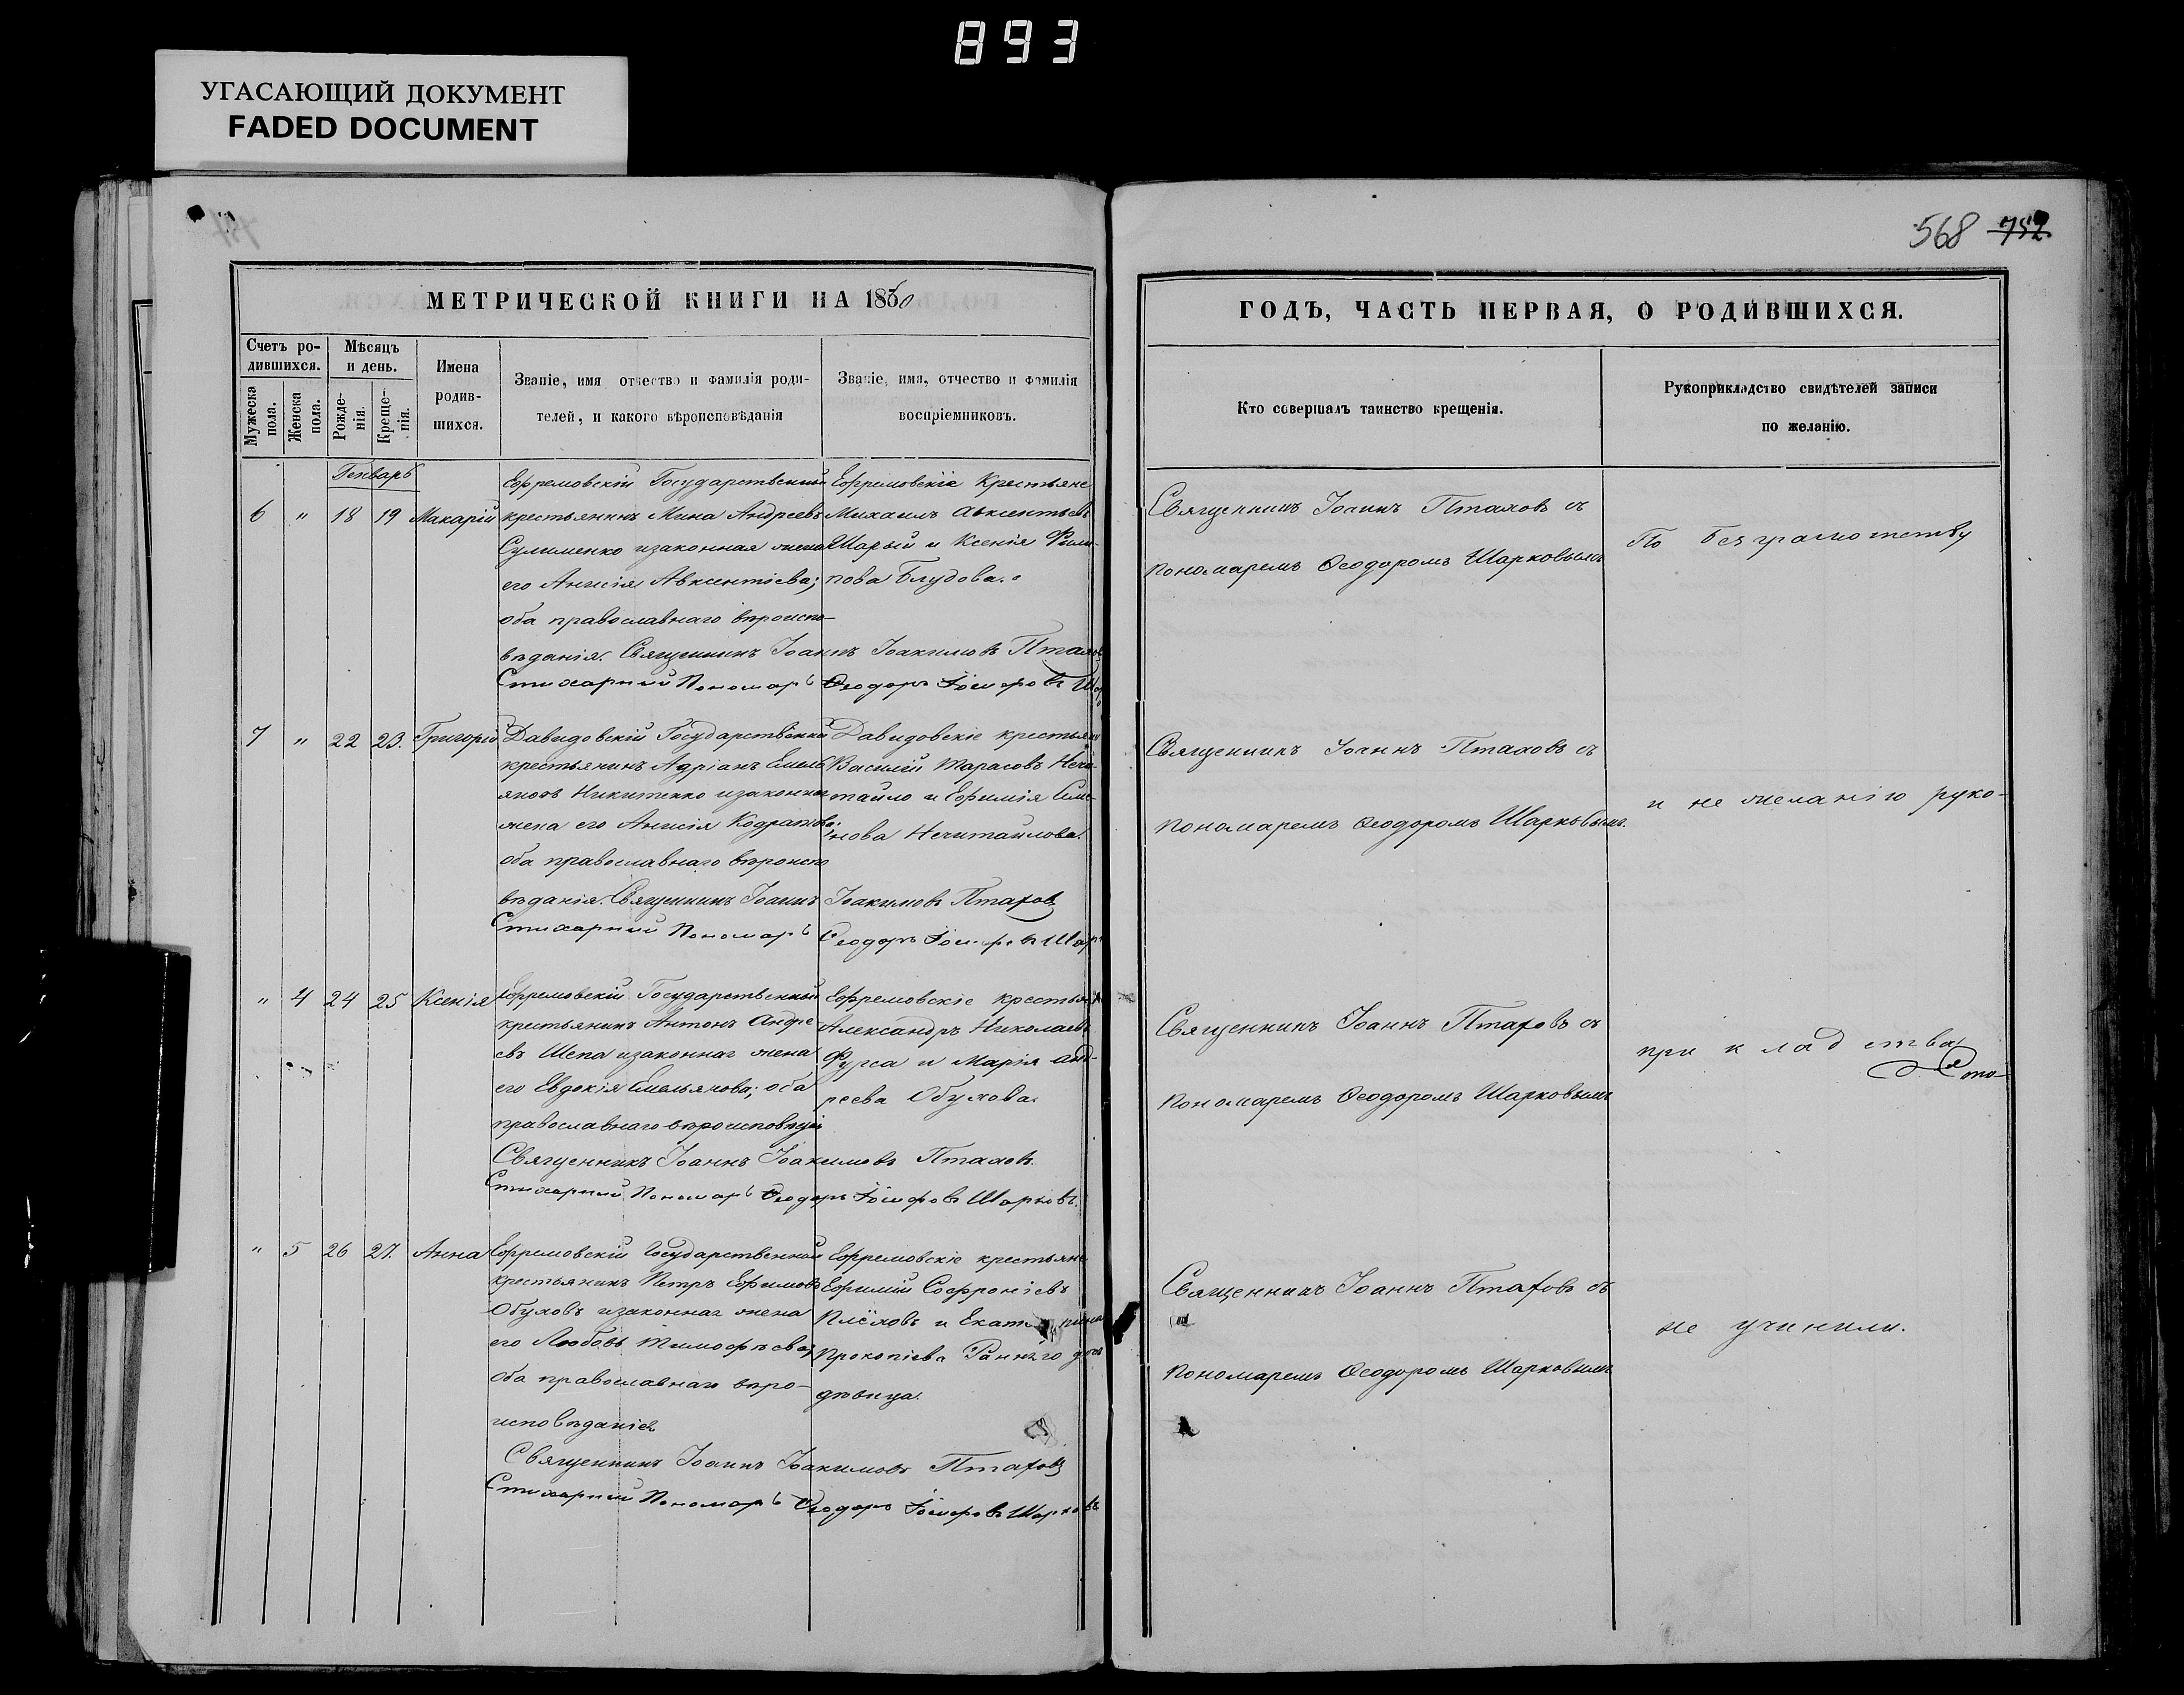 893
УГАСАЮЩИЙ ДОКУМЕНТ
FADED DOCUMENT
568 752
МЕТРИЧЕСКОЙ КНИГИ НА 1860
Счетъ ро-
дившихся.
Мужеска пола.
Женска пола.
Мѣсяцъ
и день.
Рожде-
нія.
Креще-
нія.
Имена
родив-
шихся.
Званіе, имя отчество и фамилія роди-
телей, и какого вѣроисповѣданія
Званіе, имя, отчество и фамилія
воспріемниковъ.
Генварь
6 " 18 19 Макарій
Ефремовскій Государственный
крестьянинъ Мина Андреевъ
Сулименко и законная жена
его Анисія Авксентіева;
оба православнаго вѣроиспо-
вѣданія. Священникъ Іоаннъ Іоакимовъ Птахов
Стихарный Пономарь Ѳеодоръ Іосифовъ Шар
Ефремовскіе Крестьяне
Михаилъ Авксентьевъ
Шарый и Ксенія Фили-
пова Блудова.
7 " 22 23. Григорій
Давидовскій Государственный
крестьянинъ Адріанъ Емель
яновъ Никитенко и законная
жена его Анисія Кодратова;
оба православнаго вѣроиспо
вѣданія. Священникъ Іоаннъ Іоакимовъ Птахов
Стихарный Пономарь Ѳеодоръ Іосифовъ Шар
Давидовскіе крестьяне
Василій Тарасовъ Нечи-
тайло и Ефимія Семе-
нова Нечитайлова.
" 4 24 25 Ксенія
Ефремовскій Государственный
крестьянинъ Антонъ Андре
евъ Шепа и законная жена
его Евдокія Емельянова; оба
православнаго вѣроисповѣдан
Священникъ Іоаннъ Іоакимовъ Птахов.
Стихарный Пономарь Ѳеодоръ Іосифовъ Шарковъ.
Ефремовскіе крестьяне
Александръ Николаевъ
Фурса и Марія Анд-
реева Обухова.
" 5 26 27. Анна
Ефремовскій Государственный
крестьянинъ Петръ Ефимовъ
Обуховъ и законная жена
его Любовь Тимофѣева,
оба православнаго вѣро-
исповѣданія
Священникъ Іоаннъ Іоакимовъ Птахов
Стихарный Пономарь Ѳеодоръ Іосифовъ Шарковъ
Ефремовскіе крестьяне
Ефимій Софроніевъ
Плёховъ и Екатерина
Прокопіева
дѣвица.
ГОДЪ, ЧАСТЬ ПЕРВАЯ, О РОДИВШИХСЯ.
Кто совершалъ таинство крещенія.
Рукоприкладство свидѣтелей записи
по желанію.
Священникъ Іоаннъ Птаховъ съ
пономаремъ Ѳеодоромъ Шарковымъ
По безграмотству
Священникъ Іоаннъ Птаховъ съ
пономаремъ Ѳеодоромъ Шарковымъ.
и не желанію руко-
Священникъ Іоаннъ Птаховъ съ
пономаремъ Ѳеодоромъ Шарковымъ
прикладства
Священникъ Іоаннъ Птаховъ съ
пономаремъ Ѳеодоромъ Шарковымъ
не учинили.